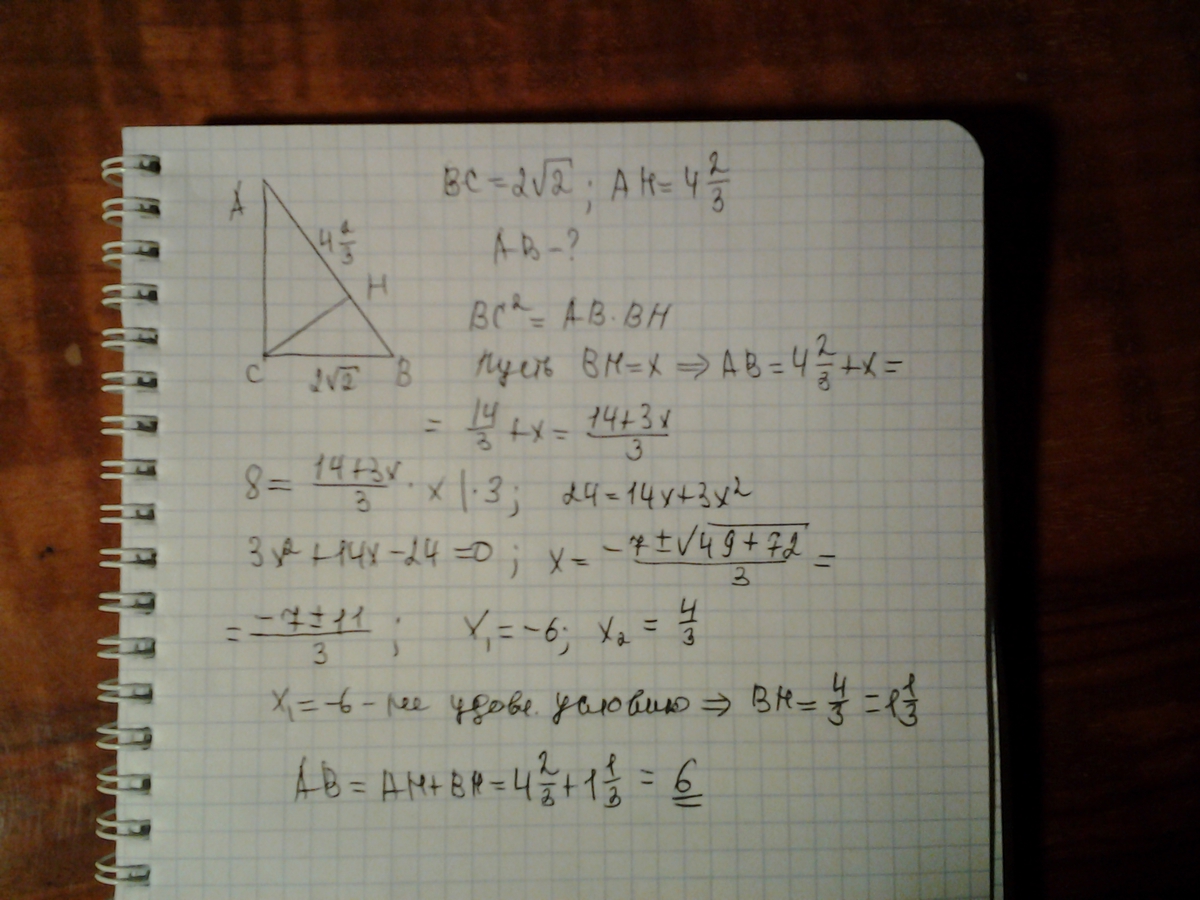 BC = 2√2 ; AH = 4 2/3
A
4 2/3
H
C
2√2
B
AB - ?
BC² = AB · BH
Пусть BH = x ⇒ AB = 4 2/3 + x =
= 14/3 + x = (14+3x)/3
8 = (14+3x)/3 · x | · 3 ; 24 = 14x + 3x²
3x² + 14x - 24 = 0 ; x = (-7 ± √(49+72))/3 =
= (-7 ± 11)/3 ; x₁ = -6; x₂ = 4/3
x₁ = -6 - не удовл. условию ⇒ BH = 4/3 = 1 1/3
AB = AH + BH = 4 2/3 + 1 1/3 = 6